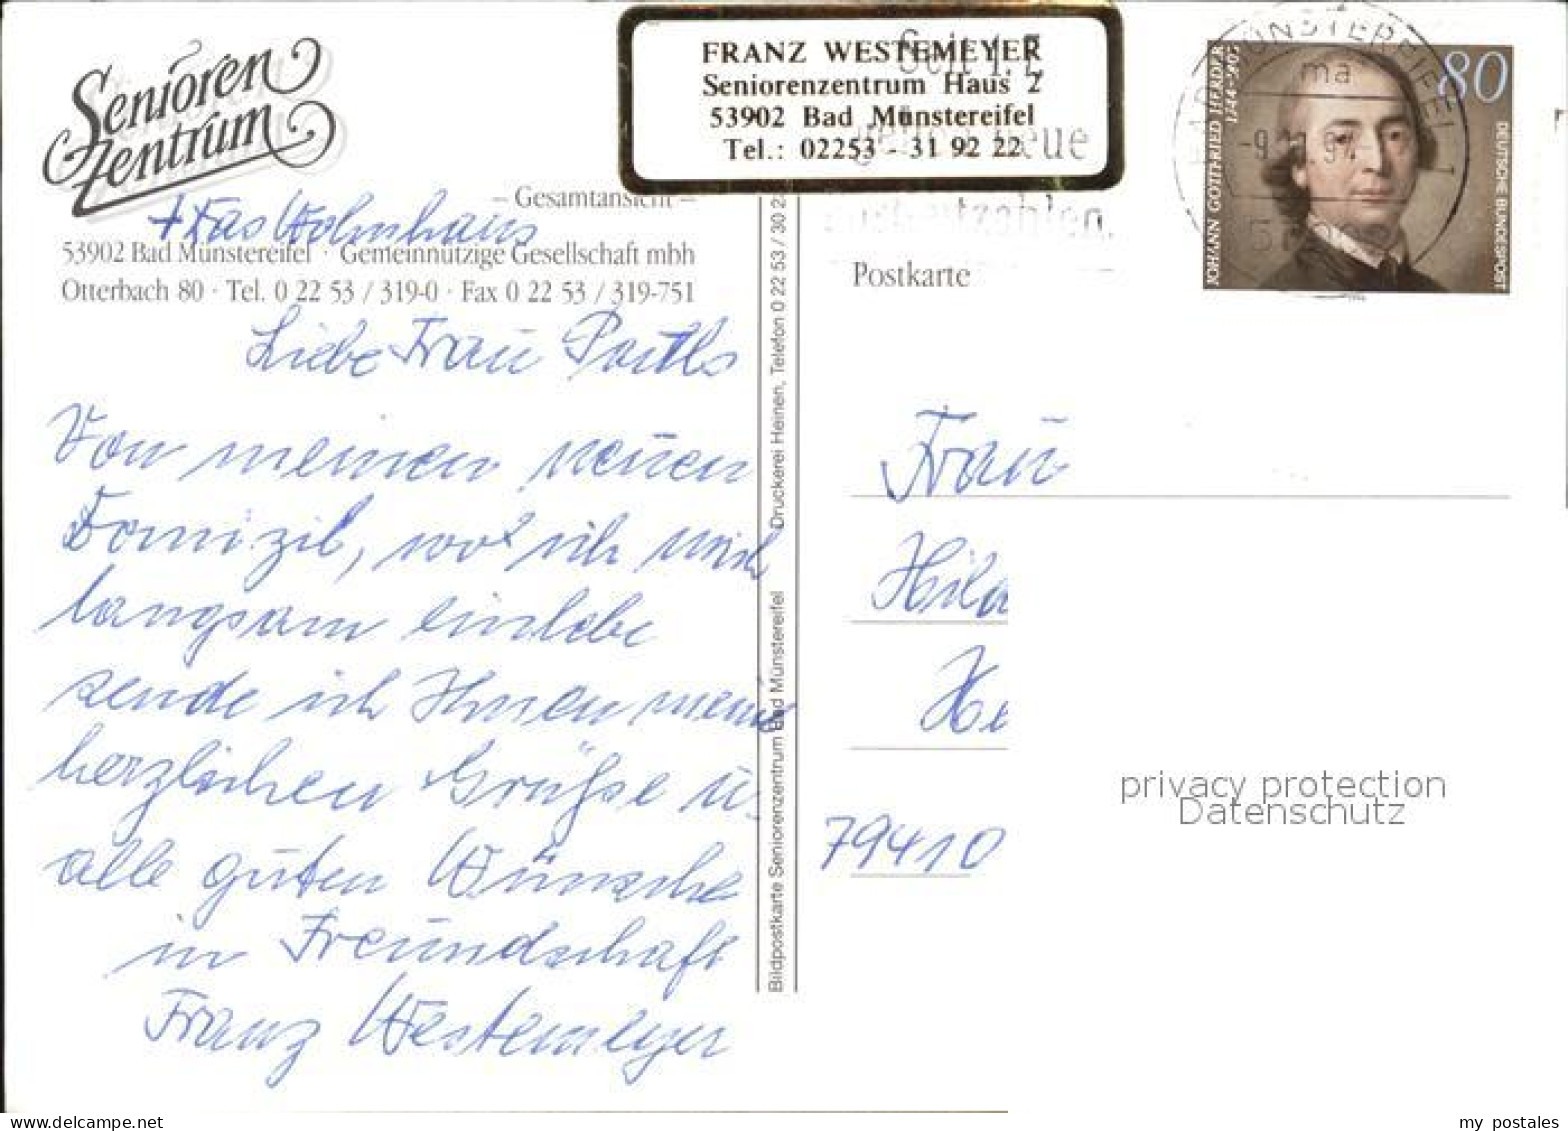 Senioren
Zentrum
– Gesamtansicht –
+ das Wohnhaus
53902 Bad Münstereifel · Gemeinnützige Gesellschaft mbh
Otterbach 80 · Tel. 0 22 53 / 319-0 · Fax 0 22 53 / 319-751
Liebe Frau
Von meinem neuen
Domizil, wo ich mich
langsam einlebe
sende ich Ihnen meine
herzlichen Grüße u.
alle guten Wünsche
in Freundschaft
Franz Westemeyer
Bildpostkarte Seniorenzentrum Bad Münstereifel Druckerei Heinen, Telefon 0 22 53 / 30 2
FRANZ WESTEMEYER
Seniorenzentrum Haus 2
53902 Bad Münstereifel
Tel.: 02253 - 31 92 22
neue
Postleitzahlen.
BAD MÜNSTEREIFEL 1
ma
JOHANN GOTTFRIED HERDER
1744-1803
80
DEUTSCHE BUNDESPOST
Postkarte
Frau
Hila
He
79410
privacy protection
Datenschutz
my postales